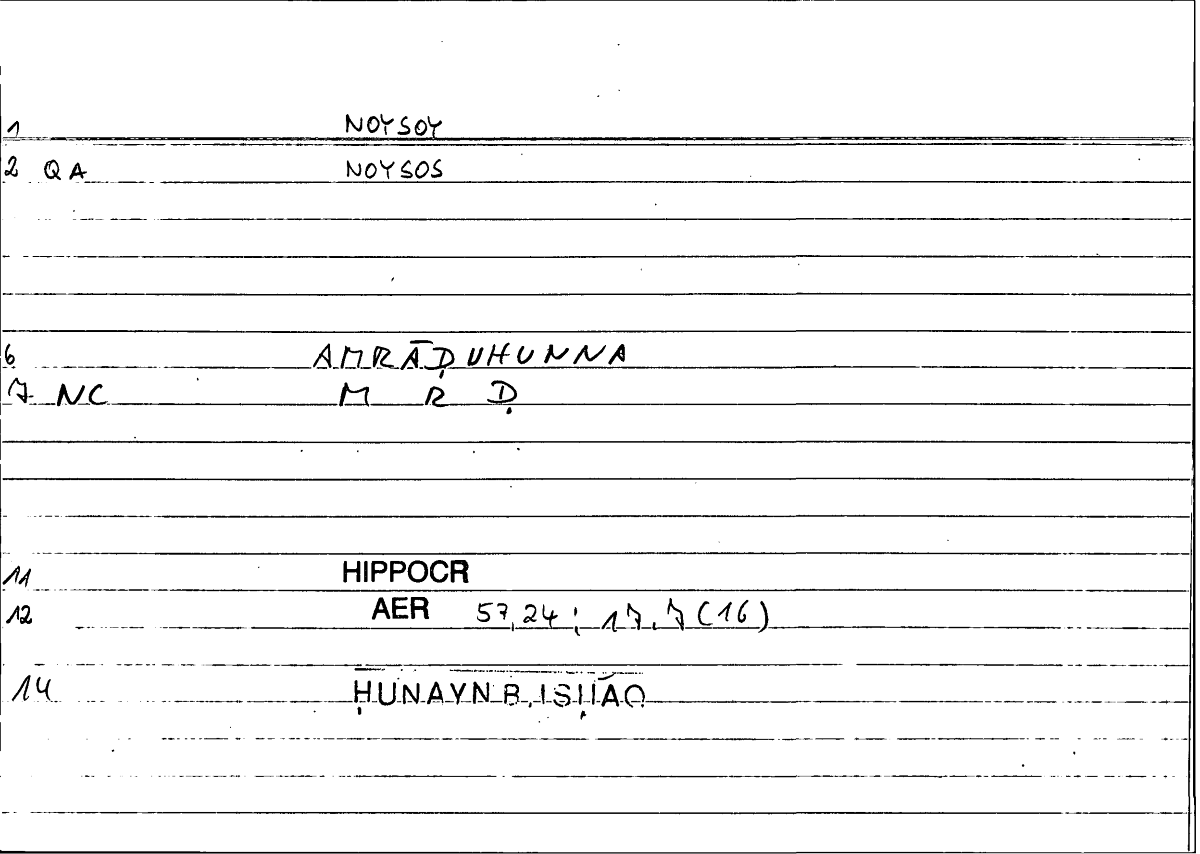 1 NOYSOY
2 QA NOYSOS
6 AMRĀḌUHUNNA
7 NC M R Ḍ
11 HIPPOCR
12 AER 57,24; 17,7 (16)
14 ḤUNAYN B. ISḤĀQ